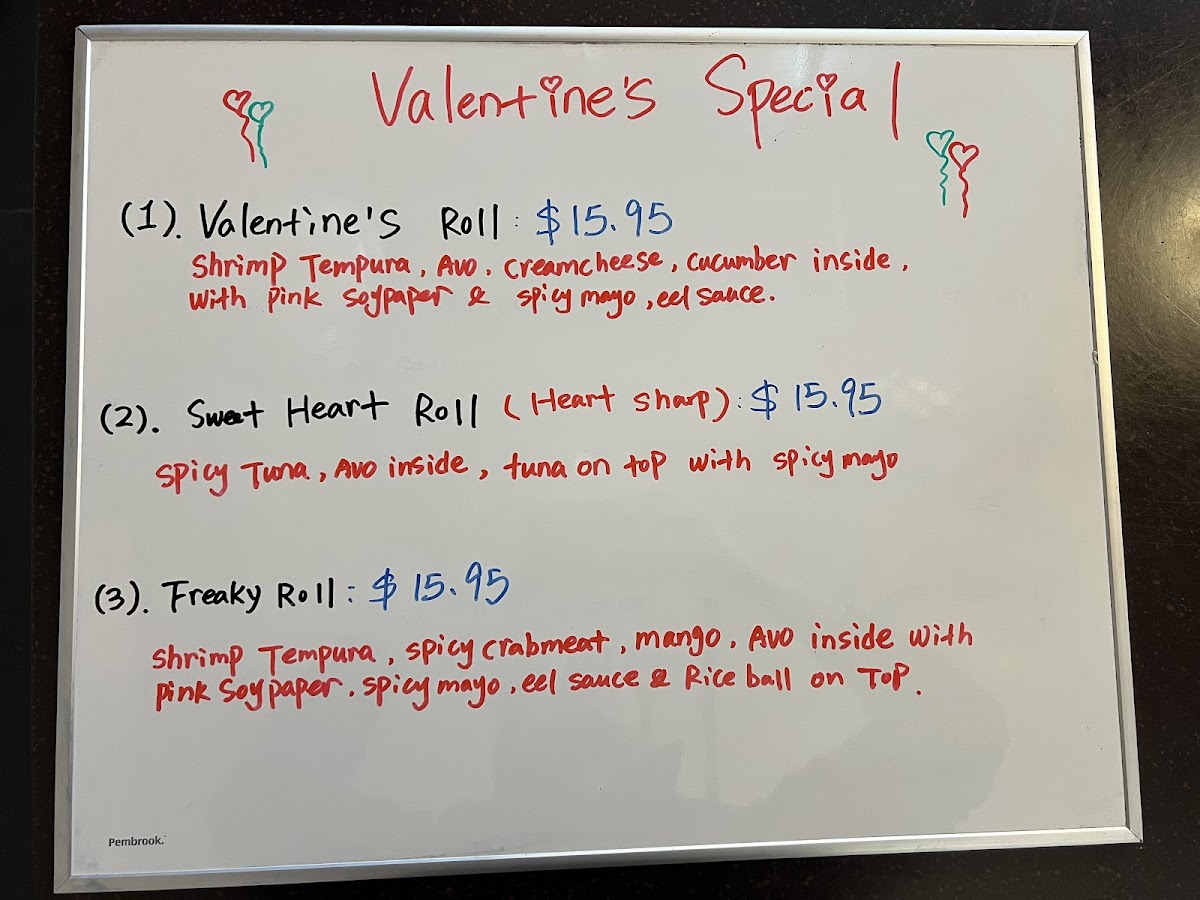 Valentine's Special
(1). Valentine's Roll: $15.95
Shrimp Tempura, Avo, creamcheese, cucumber inside,
with pink soypaper & spicy mayo, eel sauce.
(2). Sweet Heart Roll (Heart sharp): $15.95
spicy Tuna, Avo inside, tuna on top with spicy mayo
(3). Freaky Roll: $15.95
shrimp Tempura, spicy crabmeat, mango, Avo inside with
pink soypaper, spicy mayo, eel sauce & Rice ball on Top.
Pembrook.